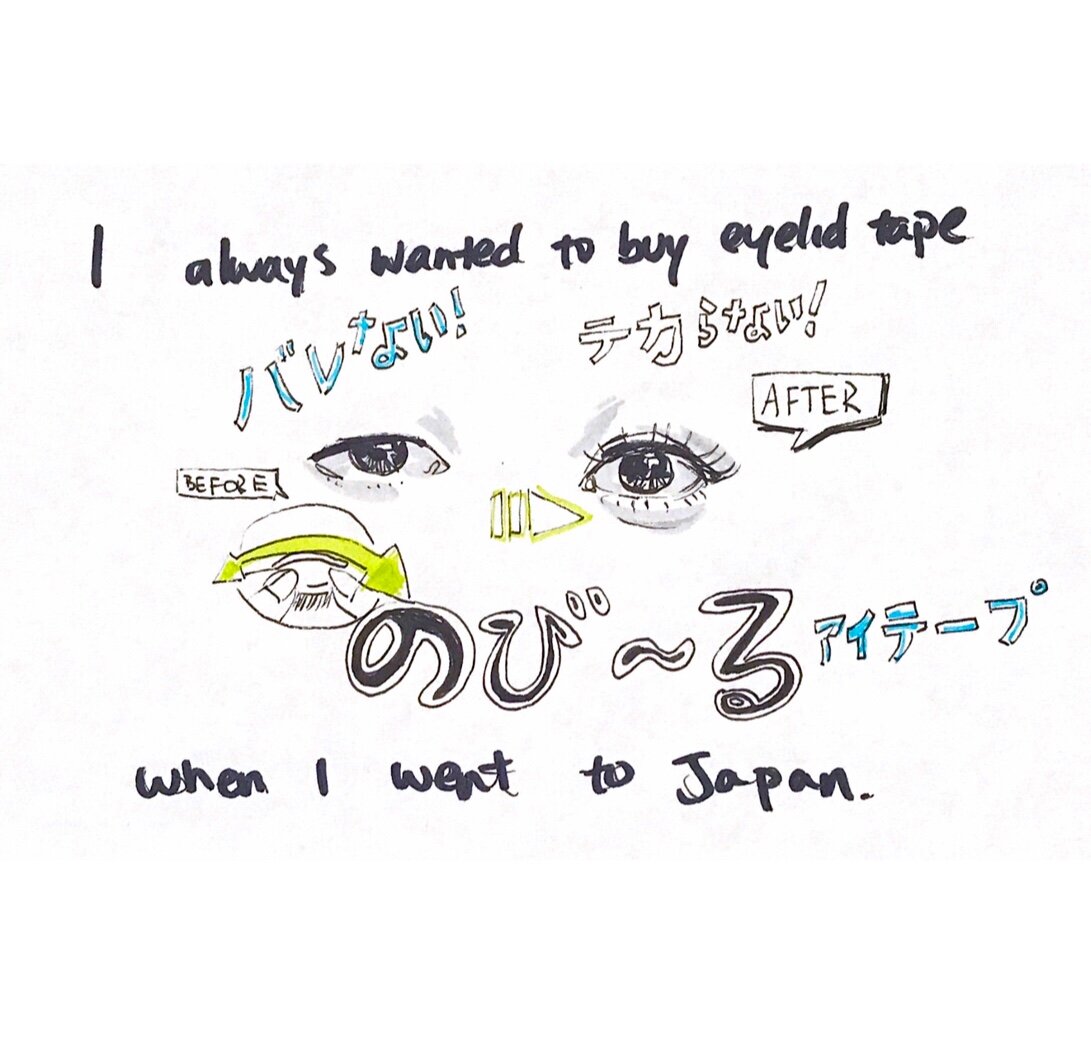 I always wanted to buy eyelid tape
バレない!
テカらない!
AFTER
BEFORE
のび〜る アイテープ
when I went to Japan.